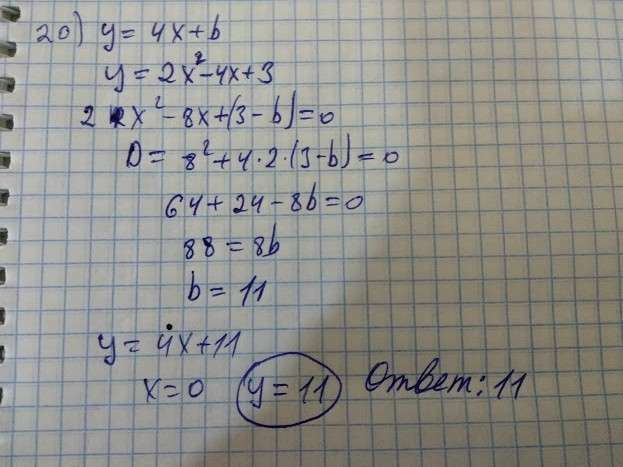 20) y = 4x+b
y = 2x²-4x+3
2x²-8x+(3-b)=0
D = 8²+4·2·(3-b)=0
64+24-8b=0
88=8b
b=11
y=4x+11
x=0 y=11 Ответ: 11